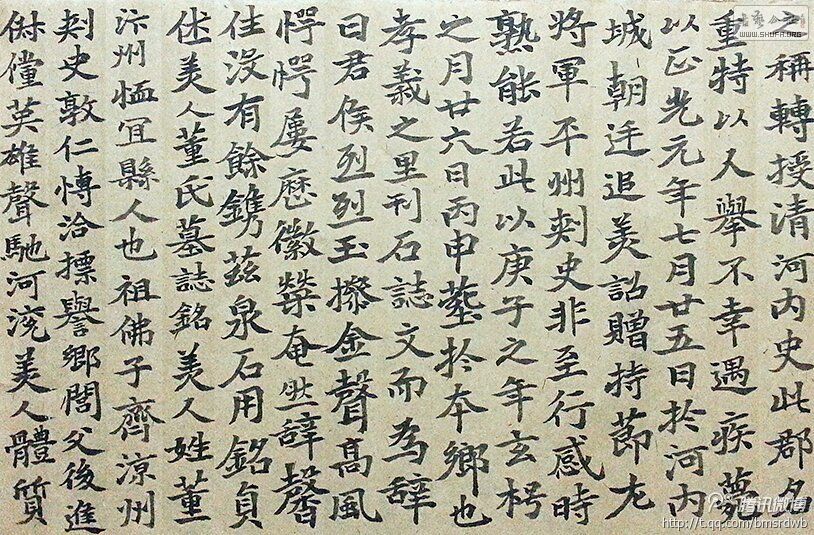 之稱轉授清河內史此郡名
重特以人舉不幸遇疾薨
以正光元年七月廿五日於河內
城朝廷追美詔贈持節左
將軍平州刺史非至行感時
熟能若此以庚子之年玄枵
之月廿六日丙申葬於本鄉也
孝義之里刊石誌文而為辭
曰君侯烈烈玉摖金聲高風
愕愕屢歷徽榮奄然辭馨
住沒有餘鐫茲泉石用銘貞
美人董氏墓誌銘美人姓董
汴州恤宜縣人也祖佛子齊涼州
刺史敦仁博洽摽譽鄉閭父後進
俶儻英雄聲馳河美人體質
WWW.SHUFA.ORG
腾讯微博
http://t.qq.com/bmsrdwb